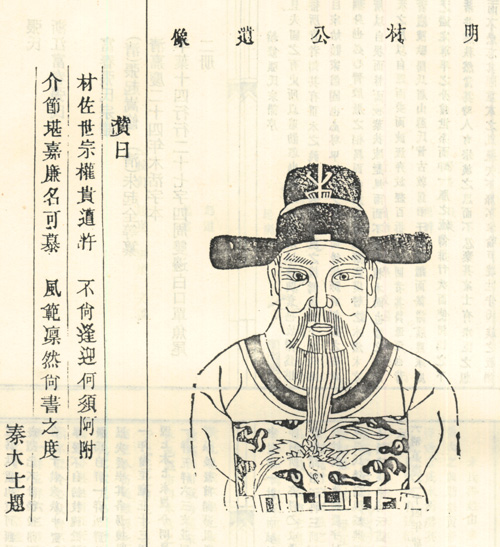 明材公遺像
贊曰
材佐世宗權貴遭忤 不尙逢迎何須阿附
介節堪嘉廉名可慕 風範凜然尙書之度
秦大士題